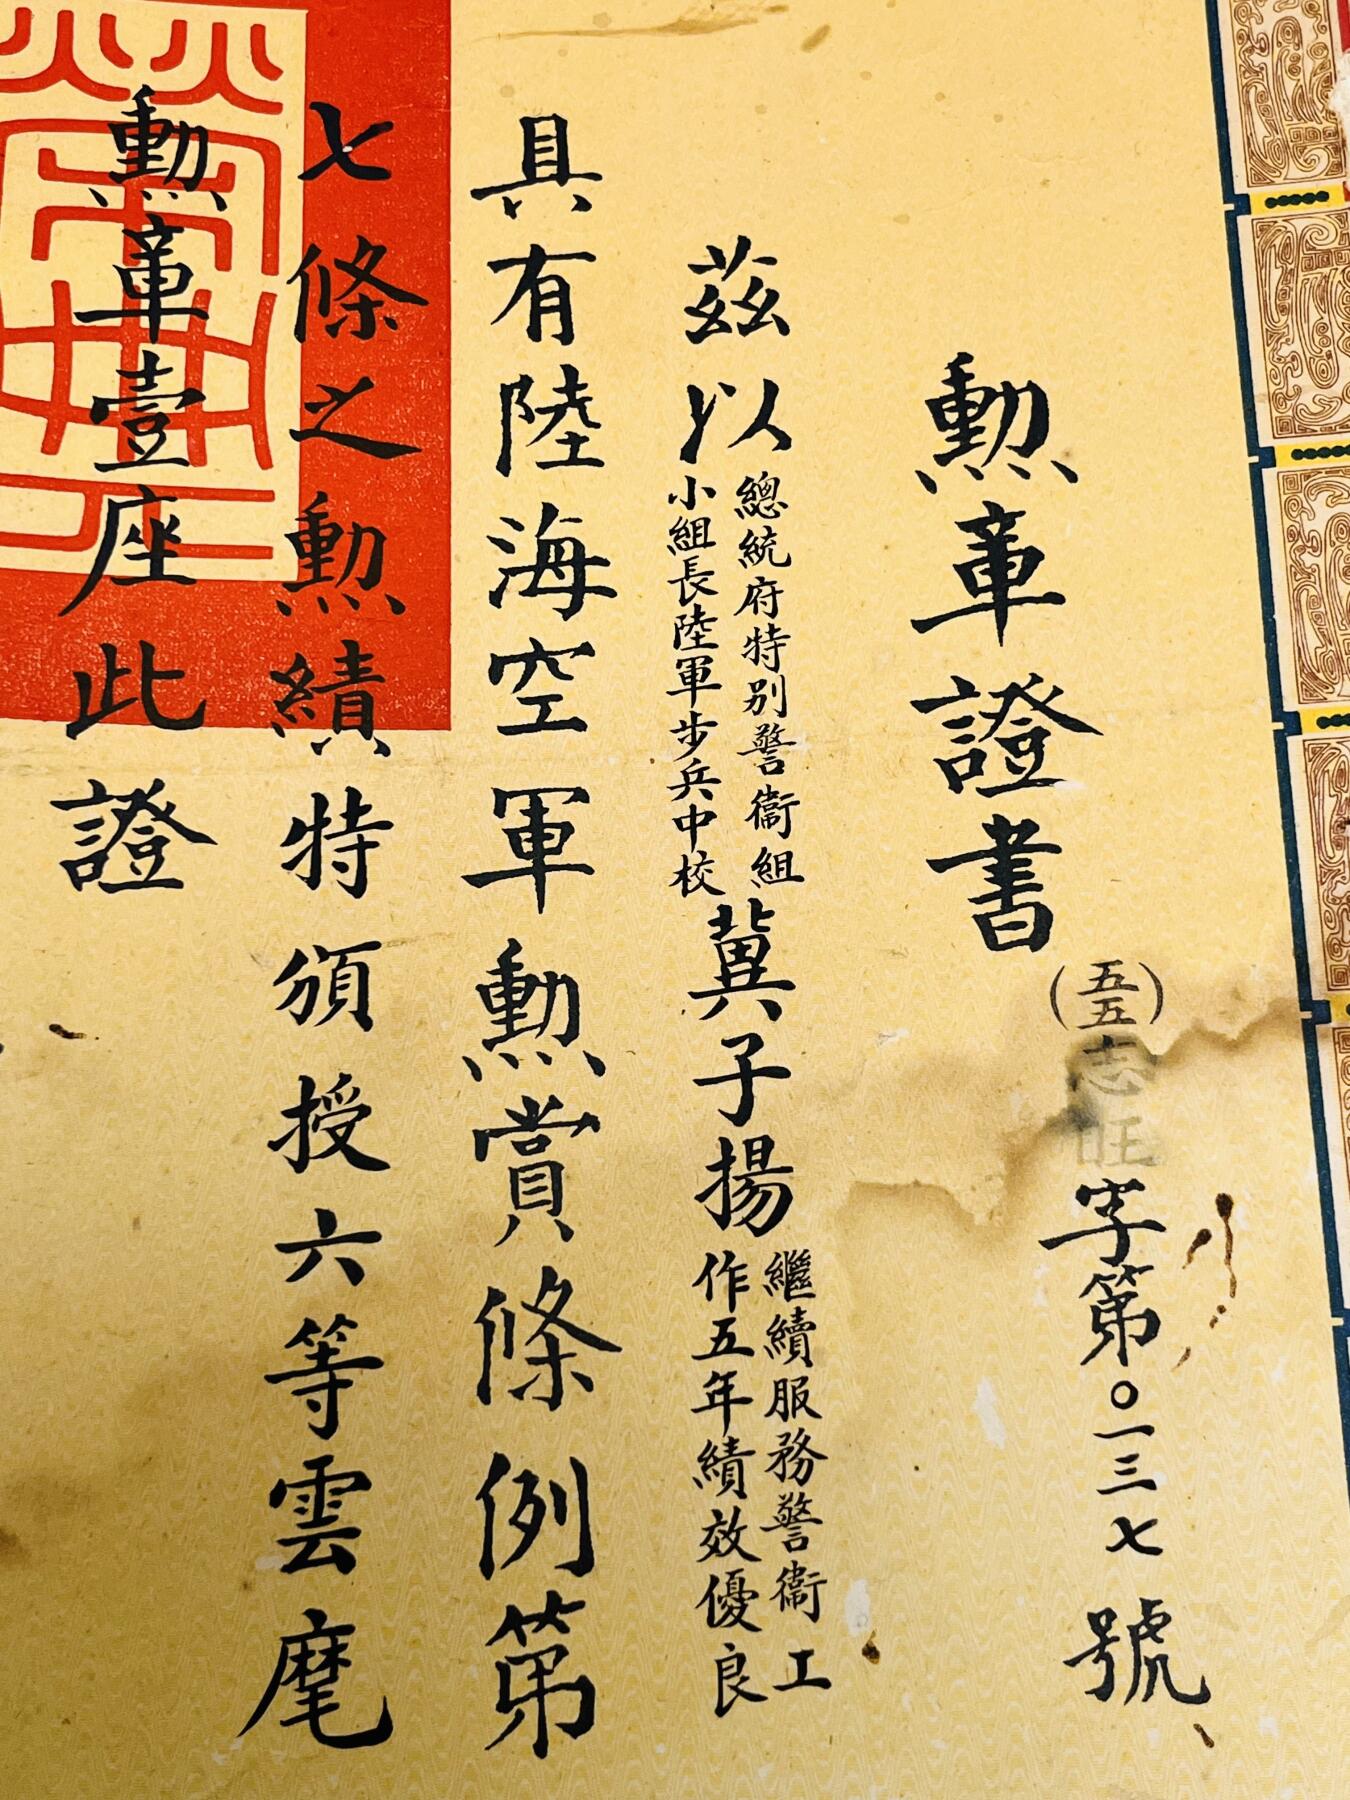 勳章證書
(五五)志旺字第〇一三七號
茲以總統府特別警衞組
小組長陸軍步兵中校
冀子揚繼續服務警衞工
作五年績效優良
具有陸海空軍勳賞條例第
七條之勳績特頒授六等雲麾
勳章壹座此證